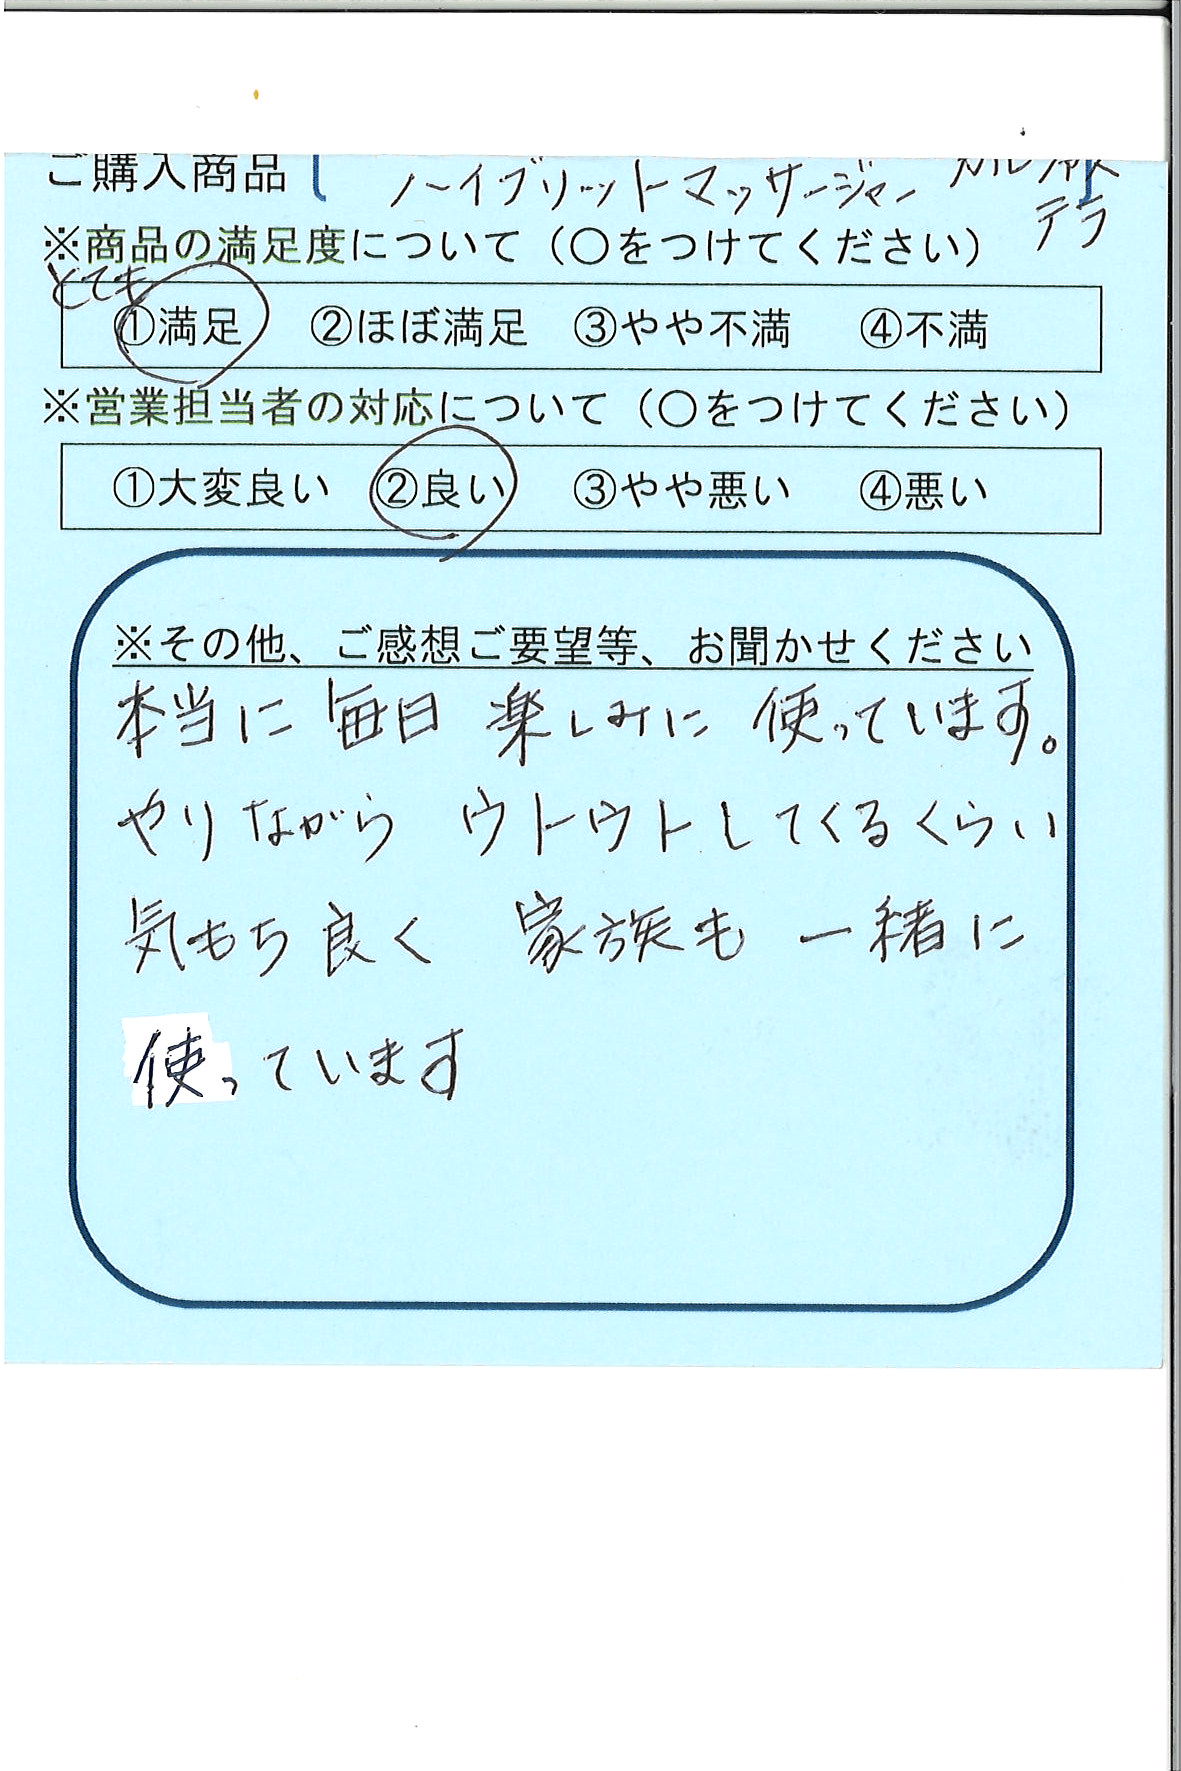 ご購入商品 ハイブリットマッサージャー
テラ
※商品の満足度について（〇をつけてください）
とても
①満足 ②ほぼ満足 ③やや不満 ④不満
※営業担当者の対応について（〇をつけてください）
①大変良い ②良い ③やや悪い ④悪い
※その他、ご感想ご要望等、お聞かせください
本当に毎日 楽しみに 使っています。
やりながら ウトウトしてくるくらい
気もち良く 家族も 一緒に
使っています